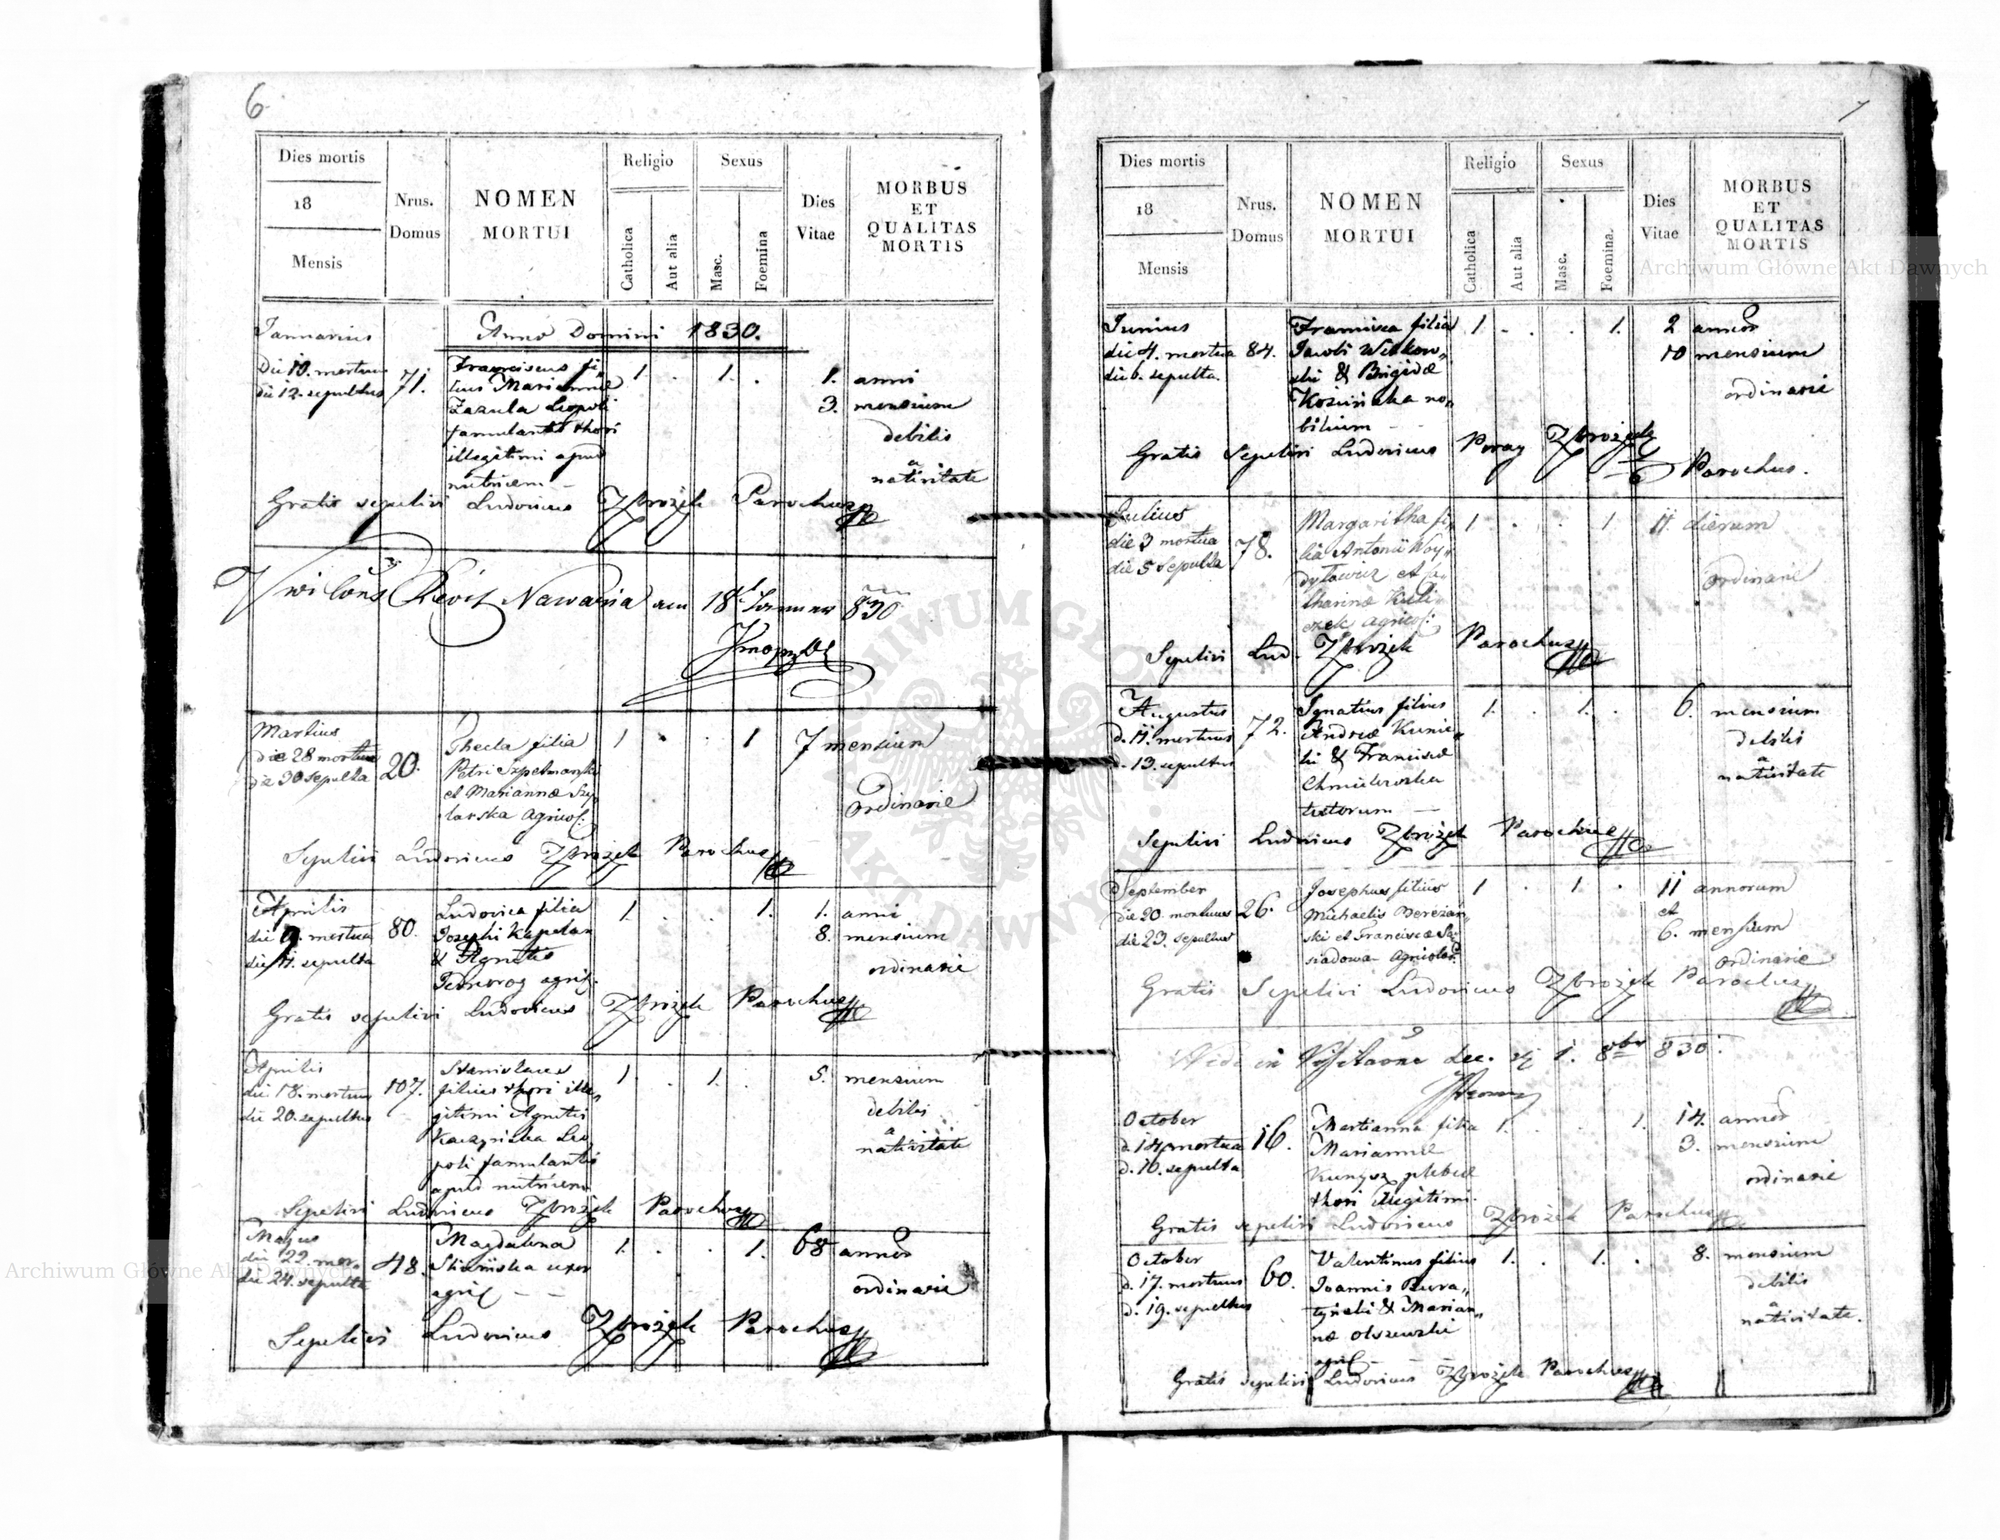 6
Dies mortis
18
Mensis
Nrus.
Domus
NOMEN
MORTUI
Religio
Catholica
Aut alia
Sexus
Masc.
Foemina
Dies
Vitae
MORBUS
ET
QUALITAS
MORTIS
Januarius
Anno Domini 1830.
die 10. mortuus
die 12. sepultus
71.
Franciscus fi-
lius Mariannae
Zazula Leopoli
famulantis thori
illegitimi apud
nutricem
1 . 1. .
1. anni
3. mensium
debilis
a
nativitate
Gratis sepelivi Ludovicus Zbrożek Parochus
Nawaria am 18t Jänner 830
Martius
die 28 mortua
die 30 sepulta
20.
Thecla filia
Petri Szpetmanski
et Mariannae Szy-
larska agricol:
1 . . 1
7 mensium
ordinarie
Sepelivi Ludovicus Zbrożek Parochus
Aprilis
die 9. mortua
die 11. sepulta
80.
Ludovica filia
Josephi Kapelan
& Agnetis
Jednorog agric.
1. . . 1.
1. anni
8. mensium
ordinarie
Gratis sepelivi Ludovicus Zbrożek Parochus
Aprilis
die 18. mortuus
die 20. sepultus
107.
Stanislaus
filius thori ille-
gitimi Agnetis
Kaczynska Leo-
poli famulantis
apud nutricem
1 . 1. .
5. mensium
debilis
a
nativitate
Sepelivi Ludovicus Zbrożek Parochus
Majus
die 22. mor.
die 24. sepulta
48.
Magdalena
uxor
agric
1. . . 1.
68 annor
ordinarie
Sepelivi Ludovicus Zbrożek Parochus
Dies mortis
18
Mensis
Nrus.
Domus
NOMEN
MORTUI
Religio
Catholica
Aut alia
Sexus
Masc.
Foemina.
Dies
Vitae
MORBUS
ET
QUALITAS
MORTIS
Junius
die 4. mortua
die 6. sepulta.
84.
Francisca filia
Jacobi Witkow-
ski & Brigidae
Kozińska no-
bilium
1. . . 1.
2 annor
10 mensium
ordinarie
Gratis Sepelivi Ludovicus Poray Zbrożek
Parochus.
Julius
die 3 mortua
die 5 sepulta
78.
Margaritha fi-
lia Antonii Woy-
dyłowicz et Ca-
tharinae
agricol:
1 . . 1
11. dierum
ordinarie
Sepelivi Lud. Zbrożek Parochus
Augustus
d. 11. mortuus
d. 13. sepultus
72.
Ignatius filius
Andreae Kunic-
ki & Franciscae
Chmielewska
textorum
1. . 1. .
6. mensium
debilis
a
nativitate
Sepelivi Ludovicus Zbrożek Parochus
September
die 20. mortuus
die 23. sepultus
26.
Josephus filius
Michaelis Berezań-
ski et Franciscae Są-
siadowa agricolar.
1 . 1 .
11 annorum
et
6. mensium
ordinarie
Gratis Sepelivi Ludovicus Zbrożek Parochus
1. 8bris 830.
October
d. 14 mortua
d. 16. sepulta
16.
Marianna filia
Mariannae
plebeae
thori illegitimi.
1. . . 1.
14. annor
3. mensium
ordinarie
Gratis sepelivi Ludovicus Zbrożek Parochus
October
d. 17. mortuus
d. 19. sepultus
60.
Valentinus filius
Joannis Bura-
tyński & Marian-
nae Olszewski
agric
1. . 1. .
8. mensium
debilis
a
nativitate.
Gratis sepelivi Ludovicus Zbrożek Parochus
Archiwum Główne Akt Dawnych
Archiwum Główne Akt Dawnych
ARCHIWUM GŁÓWNE AKT DAWNYCH